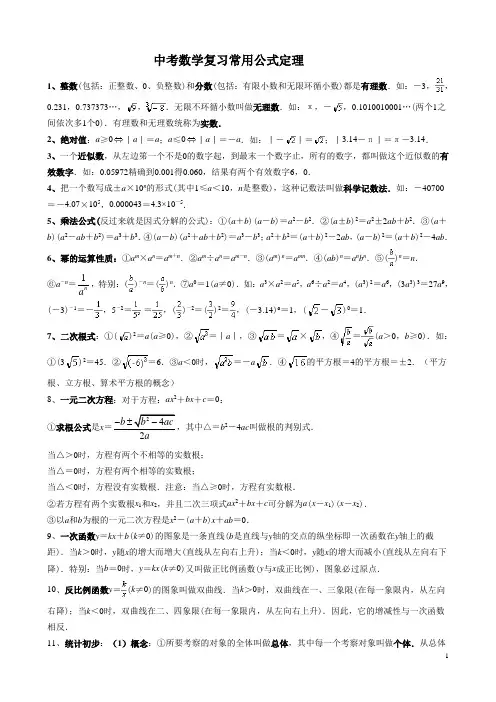 中考数学复习常用公式定理
1、整数(包括：正整数、0、负整数)和分数(包括：有限小数和无限环循小数)都是有理数．如：－3，21/31，
0.231，0.737373…，√9，∛-8．无限不环循小数叫做无理数．如：π，－√5，0.1010010001…(两个1之
间依次多1个0)．有理数和无理数统称为实数．
2、绝对值：a≥0⇔｜a｜＝a；a≤0⇔｜a｜＝－a．如：｜－√2｜＝√2；｜3.14－π｜＝π－3.14．
3、一个近似数，从左边第一个不是0的数字起，到最末一个数字止，所有的数字，都叫做这个近似数的有
效数字．如：0.05972精确到0.001得0.060，结果有两个有效数字6，0．
4、把一个数写成±a×10ⁿ的形式(其中1≤a＜10，n是整数)，这种记数法叫做科学记数法．如：－40700
＝－4.07×10⁵，0.000043＝4.3×10⁻⁵．
5、乘法公式(反过来就是因式分解的公式)：①(a＋b)(a－b)＝a²－b²．②(a±b)²＝a²±2ab＋b²．③(a＋
b)(a²－ab＋b²)＝a³＋b³．④(a－b)(a²＋ab＋b²)＝a³－b³；a²＋b²＝(a＋b)²－2ab，(a－b)²＝(a＋b)²－4ab．
6、幂的运算性质：①aᵐ×aⁿ＝aᵐ⁺ⁿ．②aᵐ÷aⁿ＝aᵐ⁻ⁿ．③(aᵐ)ⁿ＝aᵐⁿ．④(ab)ⁿ＝aⁿbⁿ．⑤(b/a)ⁿ＝n．
⑥a⁻ⁿ＝1/aⁿ，特别：(b/a)⁻ⁿ＝(a/b)ⁿ．⑦a⁰＝1(a≠0)．如：a³×a²＝a⁵，a⁶÷a²＝a⁴，(a³)²＝a⁶，(3a³)³＝27a⁹，
(－3)⁻¹＝－1/3，5⁻²＝1/5²＝1/25，(2/3)⁻²＝(3/2)²＝9/4，(－3.14)º＝1，(√2－√3)⁰＝1．
7、二次根式：①(√a)²＝a(a≥0)，②√a²＝｜a｜，③√ab＝√a×√b，④√(b/a)＝√b/√a(a＞0，b≥0)．如：
①(3√5)²＝45．②√(-6)²＝6．③a＜0时，√a²b＝－a√b．④√16的平方根＝4的平方根＝±2．（平方
根、立方根、算术平方根的概念）
8、一元二次方程：对于方程：ax²＋bx＋c＝0：
①求根公式是x＝(-b±√(b²-4ac))/2a，其中△＝b²－4ac叫做根的判别式．
当△＞0时，方程有两个不相等的实数根；
当△＝0时，方程有两个相等的实数根；
当△＜0时，方程没有实数根．注意：当△≥0时，方程有实数根．
②若方程有两个实数根x₁和x₂，并且二次三项式ax²＋bx＋c可分解为a(x－x₁)(x－x₂)．
③以a和b为根的一元二次方程是x²－(a＋b)x＋ab＝0．
9、一次函数y＝kx＋b(k≠0)的图象是一条直线(b是直线与y轴的交点的纵坐标即一次函数在y轴上的截
距)．当k＞0时，y随x的增大而增大(直线从左向右上升)；当k＜0时，y随x的增大而减小(直线从左向右下
降)．特别：当b＝0时，y＝kx(k≠0)又叫做正比例函数(y与x成正比例)，图象必过原点．
10、反比例函数y＝k/x(k≠0)的图象叫做双曲线．当k＞0时，双曲线在一、三象限(在每一象限内，从左向
右降)；当k＜0时，双曲线在二、四象限(在每一象限内，从左向右上升)．因此，它的增减性与一次函数
相反．
11、统计初步：（1）概念：①所要考察的对象的全体叫做总体，其中每一个考察对象叫做个体．从总体
1